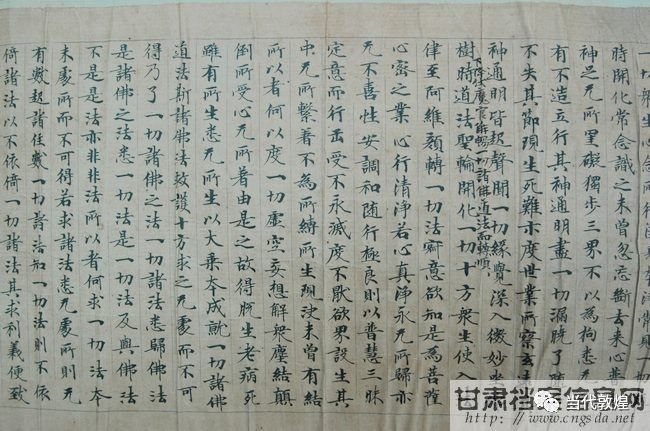 一切衆生心念所行
時開化常念識之未曾忽忘斷去来心
神足无所罣礙獨步三界不以為拘悉无
有不造立行其神通明盡一切漏曉了
不失其節現生死難示度世業所察玄
神通明啓起聲聞一切緣覺深入微妙
下降魔官屬暢一切諸佛道法而轉順
樹時道法聖輪開化一切十方衆生使入
律至阿維顏轉一切法齊意欲知是為菩薩
心密之業心行清淨若心真淨永无所歸亦
无不喜性安調和随行極良則以普慧三昧
定意而行出受不永滅度不猒欲界設生其
中无所繫著不為所縛所生現決未曾有結
所以者何以度一切虚空妄想解衆塵結顛
倒所受心无所著由是之故得脱生老病死
雖有所生悉无所生以大乘本成就一切諸佛
道法斯諸佛法救護十方求之无處而不可
得乃了一切諸佛之法一切諸法悉歸佛法
是諸佛之法悉一切法是一切法及與佛法
不是是法亦非非法所以者何求一切法本
末處所而不可得若求諸法悉无處所則无
有數越諸住數一切諸法知一切法則不依
倚諸法以不依倚一切諸法其求利義便致
甘肃档案信息网
当代敦煌
http://www.cngsda.net